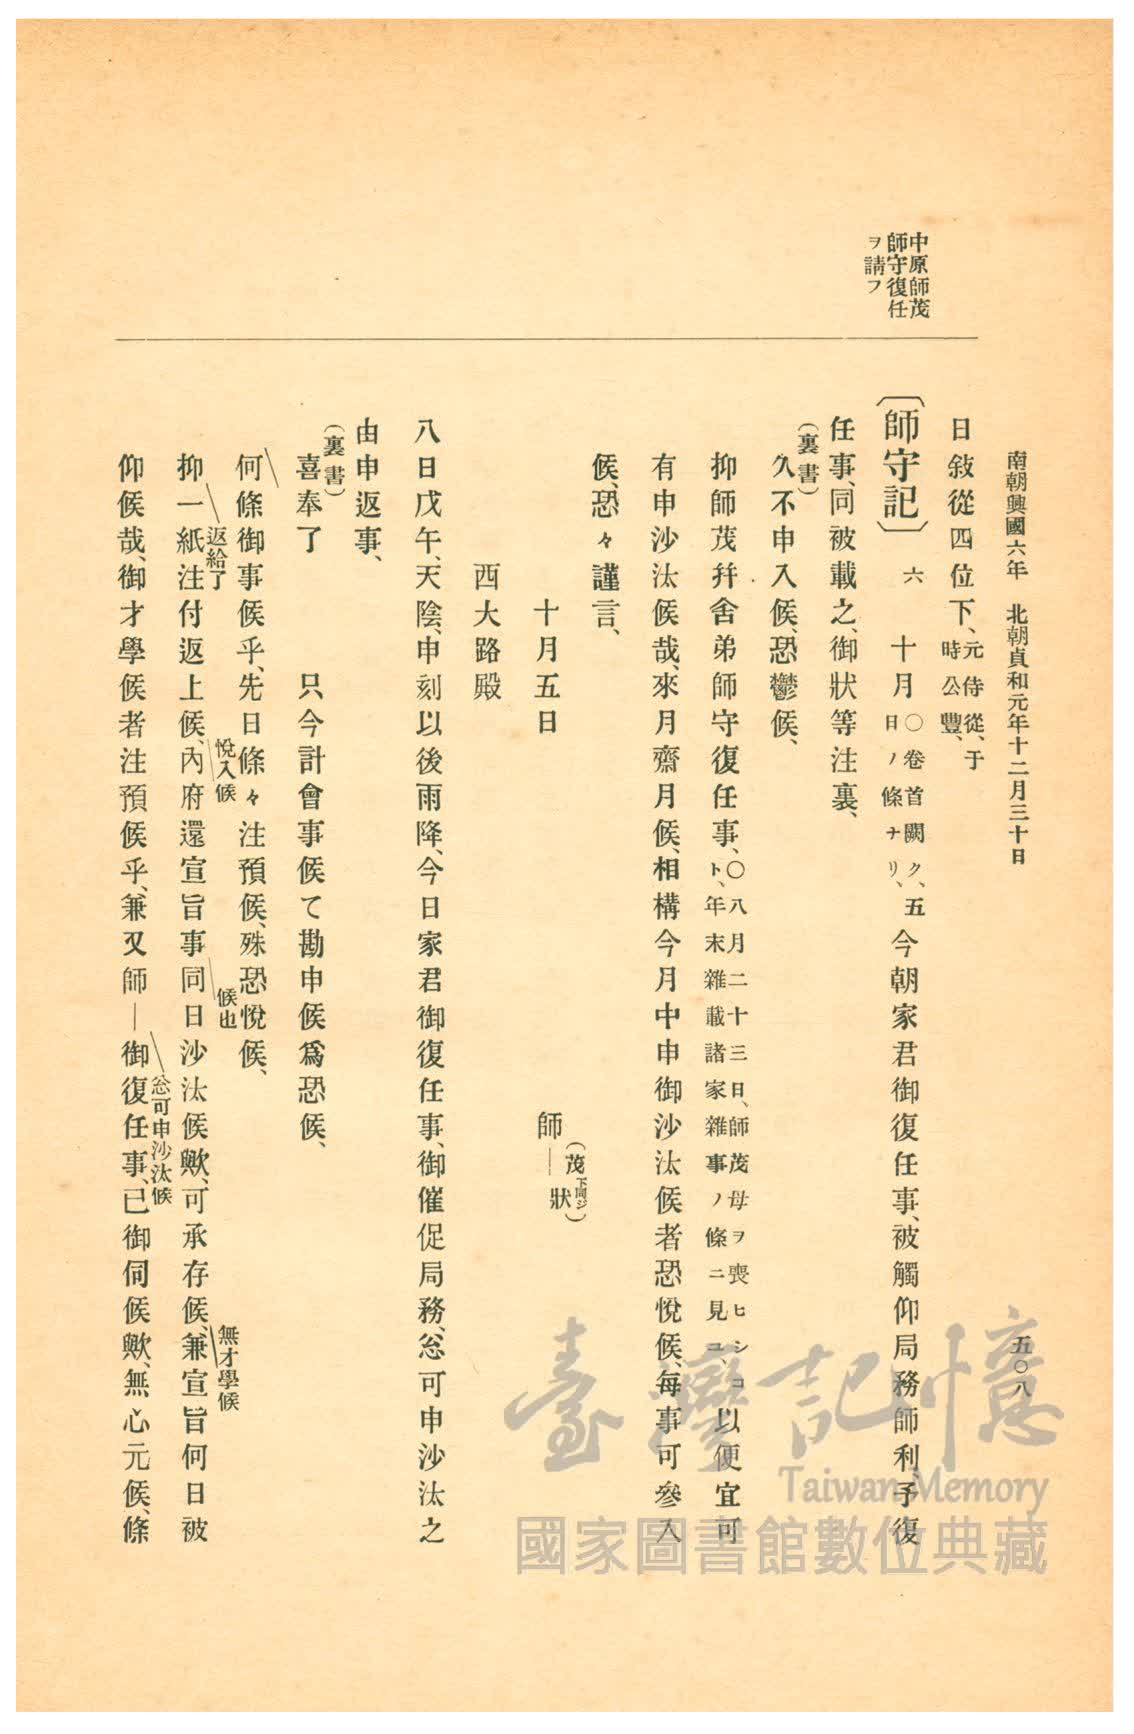 南朝興國六年 北朝貞和元年十二月三十日
五〇八
中原師茂
師守復任
ヲ請フ
日敍從四位下、元侍從、于
時公豐、
〔師守記〕 六 十月〇卷首闕ク、五
日ノ條ナリ、今朝家君御復任事、被觸仰局務師利予復
任事、同被載之、御狀等注裏、
(裏書)
久不申入候、恐鬱候、
抑師茂幷舍弟師守復任事、〇八月二十三日、師茂母ヲ喪ヒシコ
ト、年末雜載諸家雜事ノ條ニ見ユ、以便宜可
有申沙汰候哉、來月齋月候、相構今月中申御沙汰候者恐悅候、每事可參入
候、恐々謹言、
十月五日 師—狀
(茂下同ジ)
西大路殿
八日戊午、天陰、申刻以後雨降、今日家君御復任事、御催促局務、忩可申沙汰之
由申返事、
(裏書)
喜奉了 只今計會事候て勘申候爲恐候、
何條御事候乎、先日條々注預候、殊恐悅候、
返給了 悅入候 候也 無才學候
抑一紙注付返上候、內府還宣旨事同日沙汰候歟、可承存候、兼宣旨何日被
忩可申沙汰候
仰候哉、御才學候者注預候乎、兼又師—御復任事、已御伺候歟、無心元候、條
臺灣記憶
Taiwan Memory
國家圖書館數位典藏